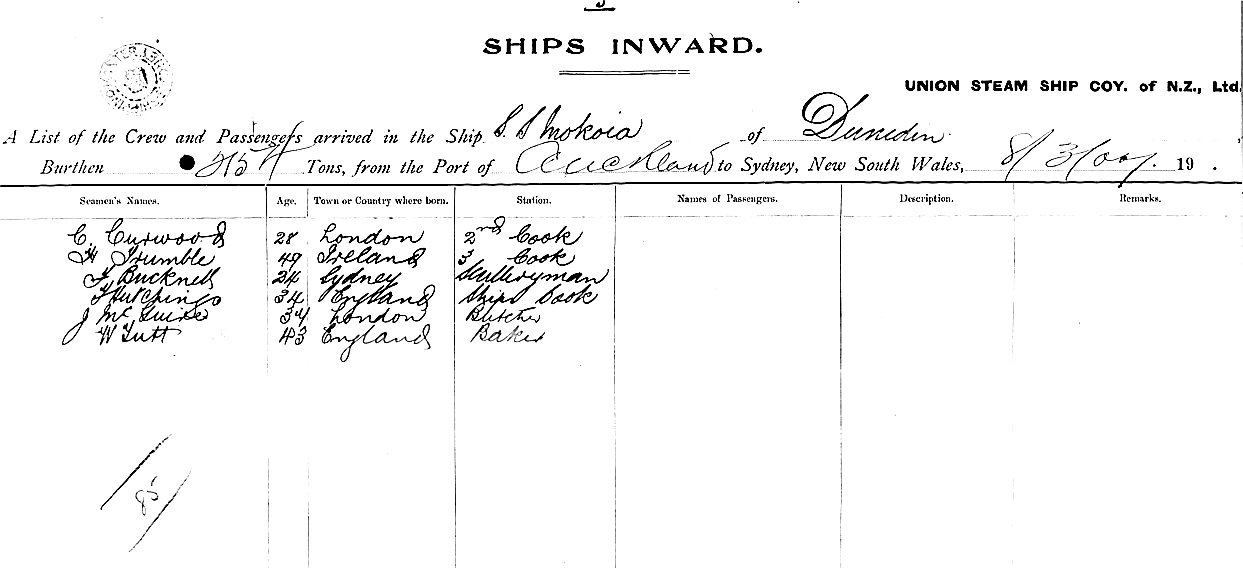 3
SHIPS INWARD.
UNION STEAM SHIP COY. of N.Z., Ltd
A List of the Crew and Passengers arrived in the Ship S. S Mokoia of Dunedin
Burthen 2154 Tons, from the Port of Auckland to Sydney, New South Wales, 8/3/ 19 .
Seamen's Names. Age. Town or Country where born. Station. Names of Passengers. Description. Remarks.
C. Curwood 28 London 2nd Cook
H Trumble 49 Ireland 3 Cook
F Bucknell 24 Sydney Sculleryman
F Hutchings 34 England Ships Cook
J McGuire 34 London Butcher
W Tutt 43 England Baker
85